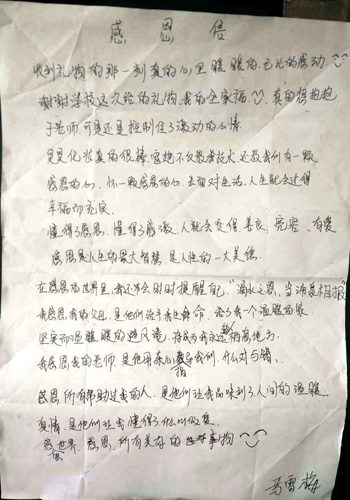 感恩信
收到礼物的那一刻真的心里暖暖的,无比的感动
谢谢学校这次给的礼物,我的全家福 真的想抱抱
于老师,可是还是控制住了激动的心情
是化妆真的很棒,但不仅老师技术还教我们有一颗
感恩的心,怀一颗感恩的心,去面对生活,人生就会过得
幸福而充实。
懂得了感恩,懂得了感激,人就会变得善良,宽容,有爱
感恩是人生的最大智慧,是人性的一大美德。
在感恩的世界里,我还不会时时提醒自己,“滴水之恩,当涌泉相报
我感恩我的父母,是他们给予我生命,给了我一个温暖的家
坚实而温暖的避风港,将成为我永远的地方
我感恩我的老师,是他用耐心指导我们,什么对与错。
感恩所有帮助过我的人,是他们让我品味到了人间的温暖
友情,是他们让我懂得了什么叫做爱
感恩世界,感恩所有美好的事物
马雪梅